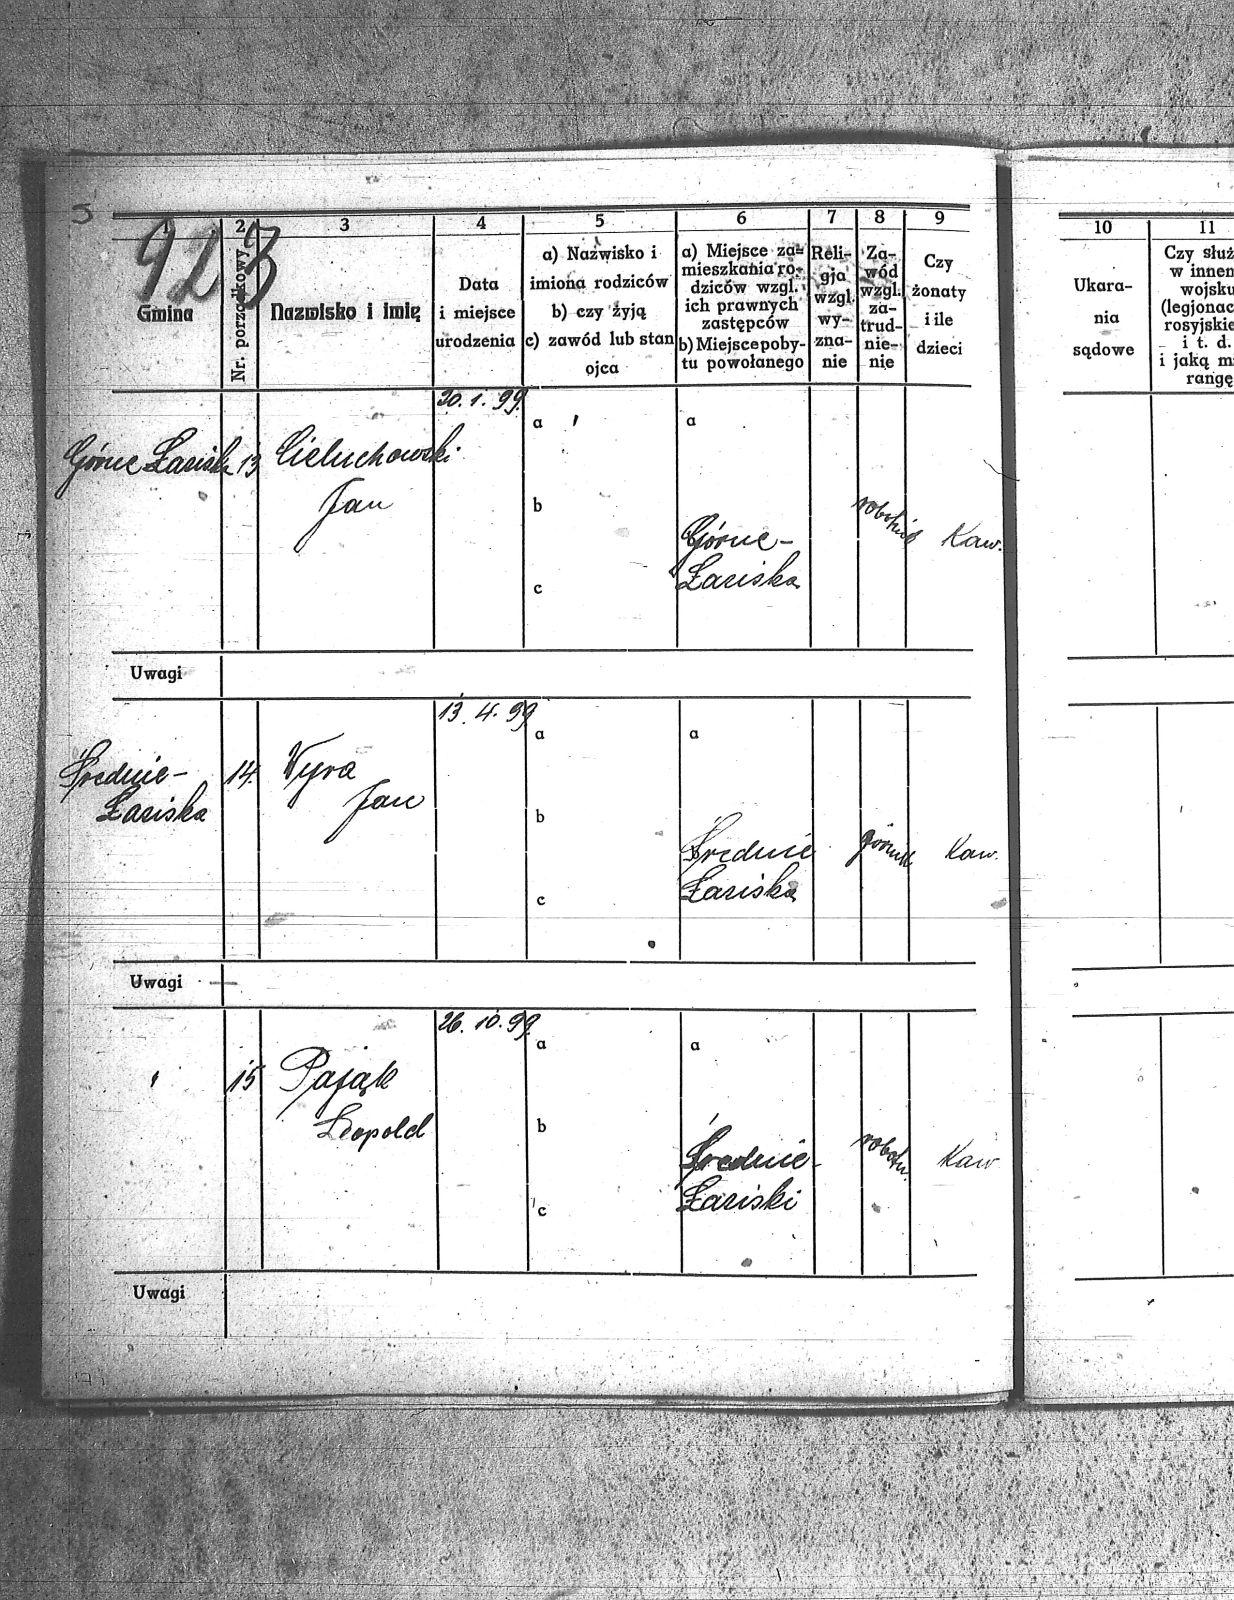 5
923
1 2 3 4 5 6 7 8 9
Gmina
Nr. porządkowy
Nazwisko i imię
Data
i miejsce
urodzenia
a) Nazwisko i
imiona rodziców
b) czy żyją
c) zawód lub stan
ojca
a) Miejsce za-
mieszkania ro-
dziców wzgl.
ich prawnych
zastępców
b) Miejsce poby-
tu powołanego
Reli-
gja
wzgl.
wy-
zna-
nie
Za-
wód
wzgl.
za-
trud-
nie-
nie
Czy
żonaty
i ile
dzieci
10 11
Ukara-
nia
sądowe
Czy służ
w innem
wojsku
(legjonac
rosyjskie
i t. d.
i jaką m
rangę
20. 1. 99.
a
a
Górne Łazisk 13 Cieluchowski
Jan
b
robotnik
Kaw.
Górne-
Łaziska
c
Uwagi
13. 4. 99
a
a
Średnie-
Łaziska
14.
Vyra
Jan
b
Średnie
Łaziska
górnik
Kaw.
c
Uwagi
26. 10. 99.
a
a
15
Pająk
Leopold
b
Średnie-
Łaziski
robotn.
Kaw
c
Uwagi